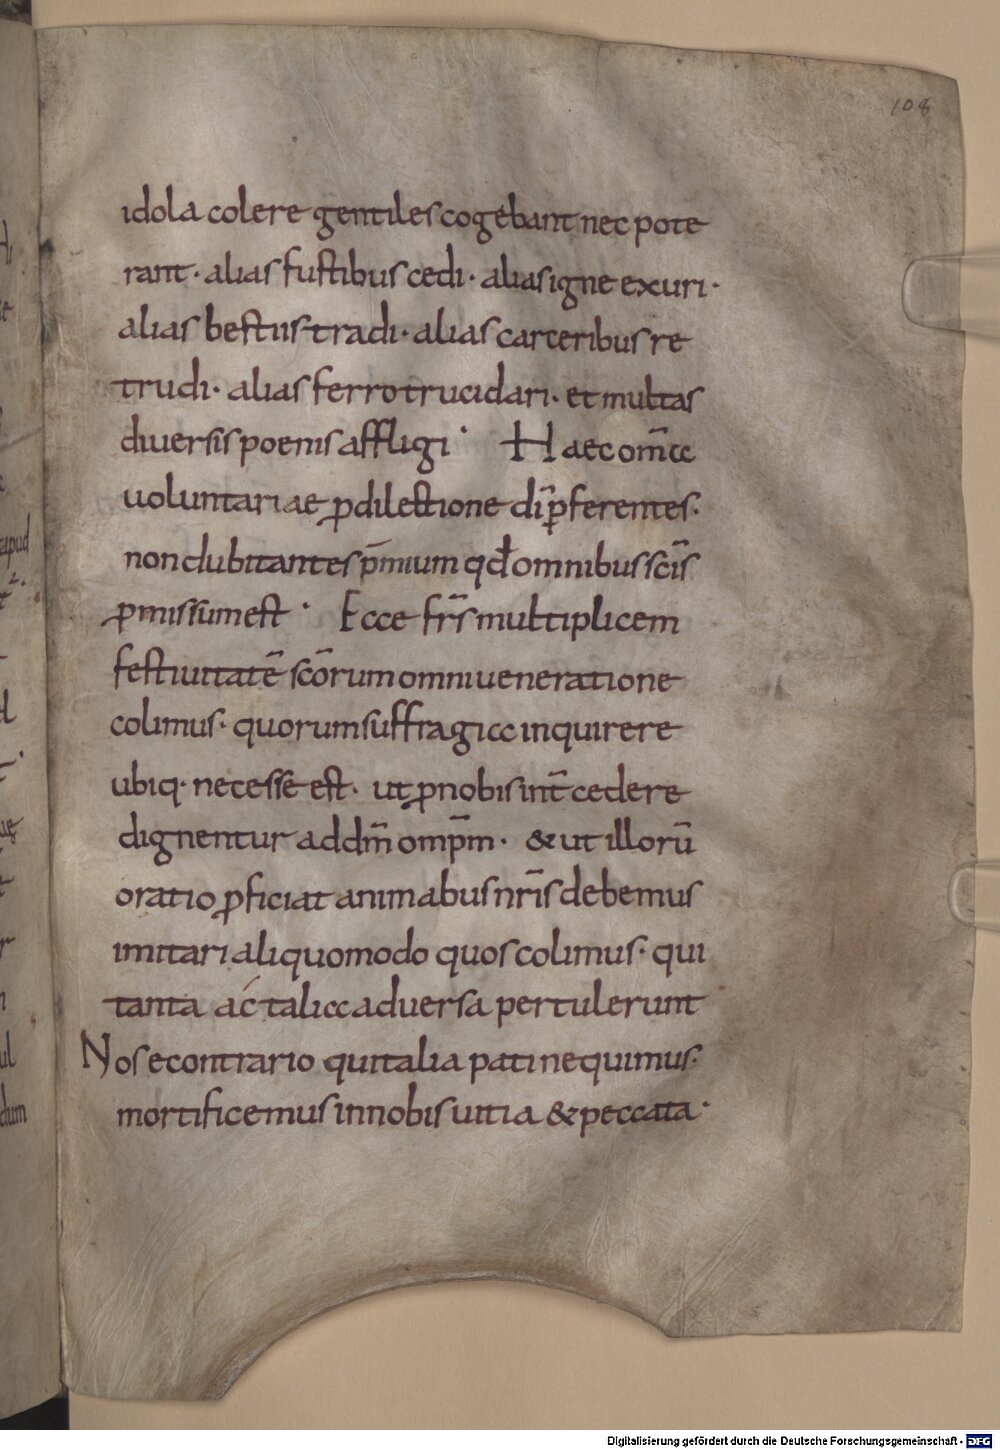 108
idola colere gentiles cogebant nec pote
rant · alias fustibus cedi · alias igne exuri ·
alias bestiis tradi · alias carceribus re
trudi · alias ferro trucidari · et multas
diuersis poenis affligi · Haec om̅a
uoluntariae ꝓ dilectione di̅ p̲ferentes ·
non dubitantes p̅mium qđ omnibus sci̅s
ꝓmissum est · Ecce fr̅s multiplicem
festiuitate̅ sco̅rum omni ueneratione
colimus · quorum suffragia inquirere
ubiq· necesse est · ut ꝓ nobis int̅cedere
dignentur ad dm̅ omp̅m · & ut illoru̅
oratio ꝓficiat animabus nr̅is debemus
imitari aliquomodo quos colimus · qui
tanta ac talia aduersa pertulerunt
Nos econtrario qui talia pati nequimus ·
mortificemus in nobis uitia & peccata ·
Digitalisierung gefördert durch die Deutsche Forschungsgemeinschaft - DFG